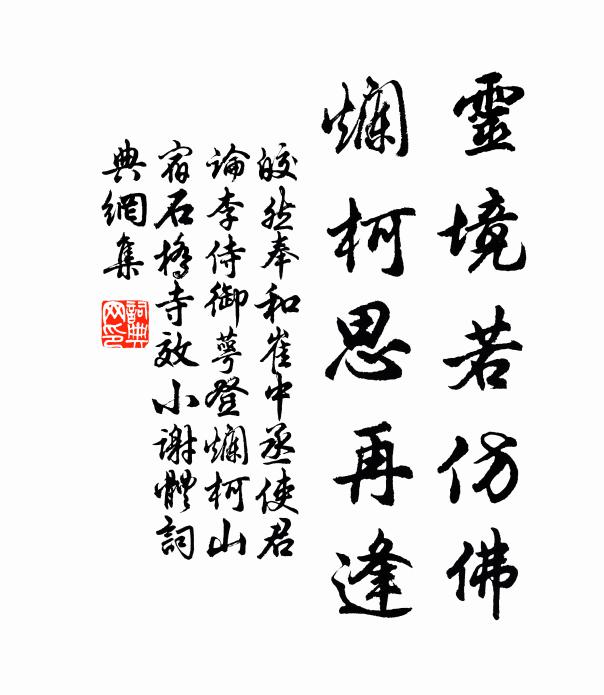 靈境若仿佛
爛柯思再逢
皎然奉和崔中丞使君
論李侍御萼登爛柯山
宿石橋寺效小謝體詞
典網集
詞典網印